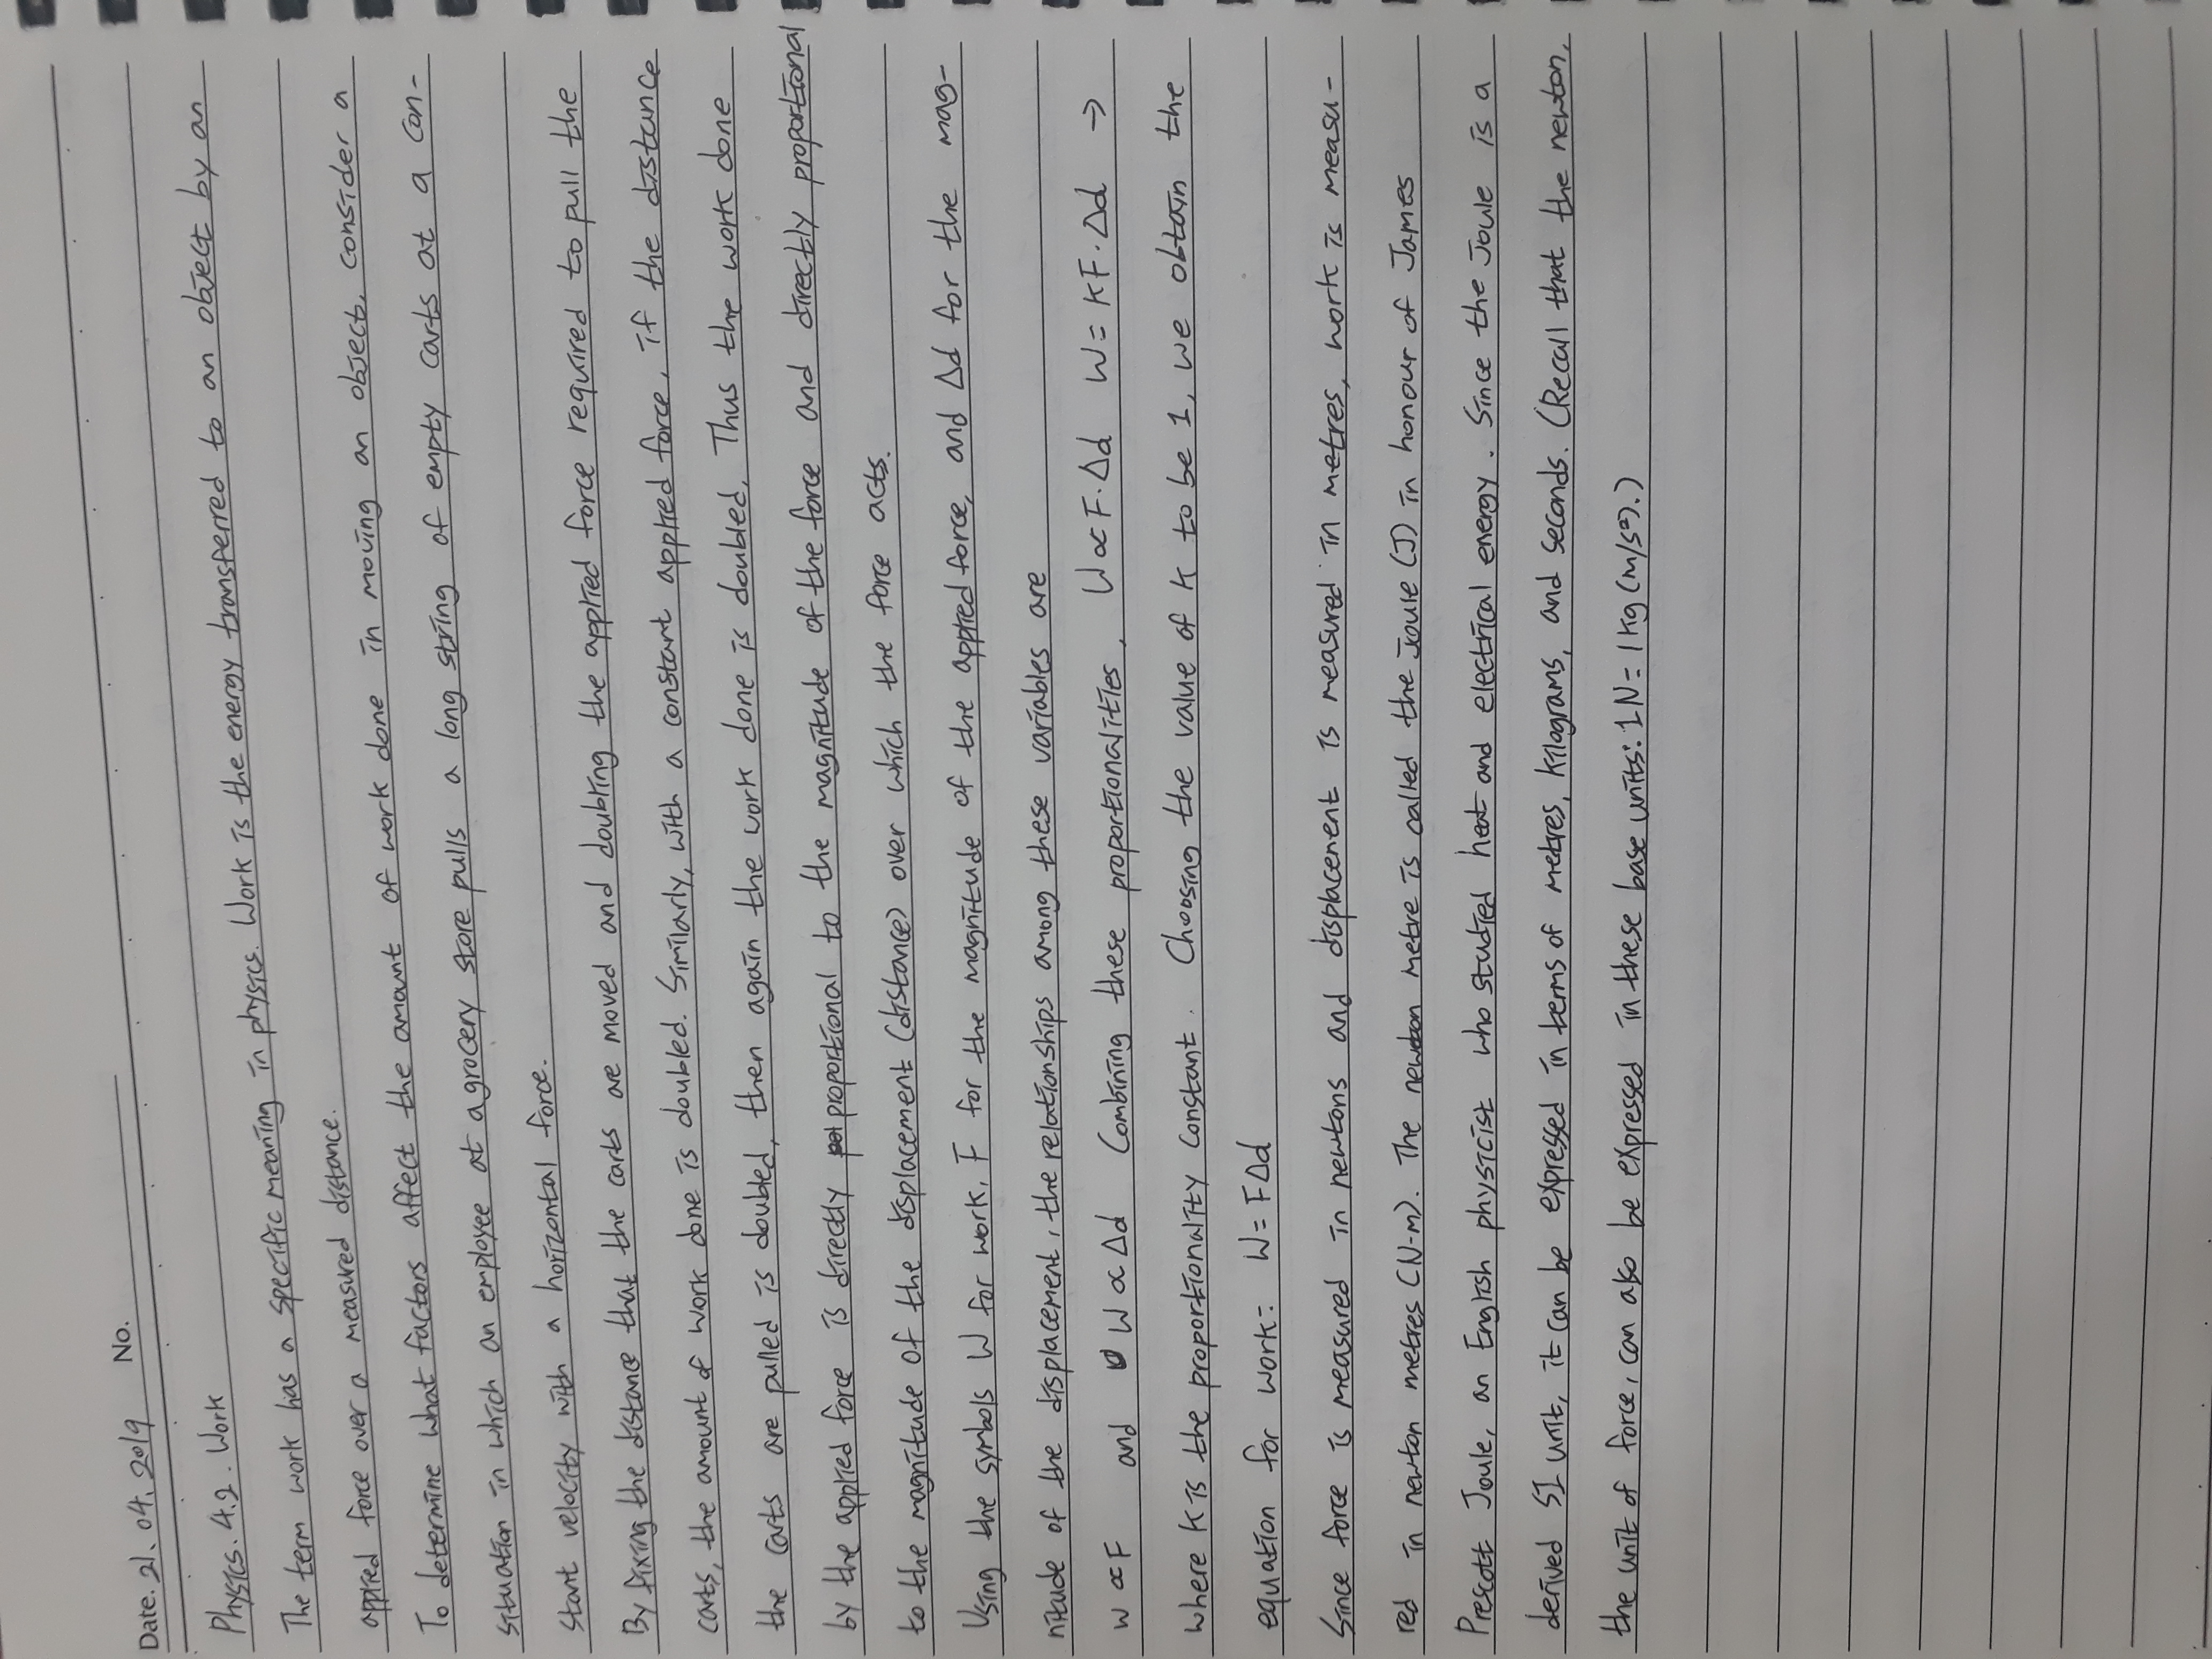 Date. 21. 04. 2019 No.
Physics. 4.2. Work
The term work has a specific meaning in physics. Work is the energy transferred to an object by an
applied force over a measured distance.
To determine what factors affect the amount of work done in moving an object, consider a
situation in which an employee at a grocery store pulls a long string of empty carts at a con-
stant velocity with a horizontal force.
By fixing the distance that the carts are moved and doubling the applied force required to pull the
carts, the amount of work done is doubled. Similarly, with a constant applied force, if the distance
the carts are pulled is doubled, then again the work done is doubled. Thus the work done
by the applied force is directly poportional to the magnitude of the force and directly proportional
to the magnitude of the displacement (distance) over which the force acts.
Using the symbols W for work, F for the magnitude of the applied force, and Δd for the mag-
nitude of the displacement, the relationships among these variables are
W ∝ F and W ∝ Δd Combining these proportionalities, W ∝ F·Δd W = kF·Δd →
where k is the proportionality constant. Choosing the value of k to be 1, we obtain the
equation for work: W = FΔd
Since force is measured in newtons and displacement is measured in metres, work is measu-
red in newton metres (N-m). The newton metre is called the Joule (J) in honour of James
Prescott Joule, an English physicist who studied heat and electrical energy. Since the Joule is a
derived SI unit, it can be expressed in terms of metres, kilograms, and seconds. (Recall that the newton,
the unit of force, can also be expressed in these base units: 1N = 1 kg (m/s²).)